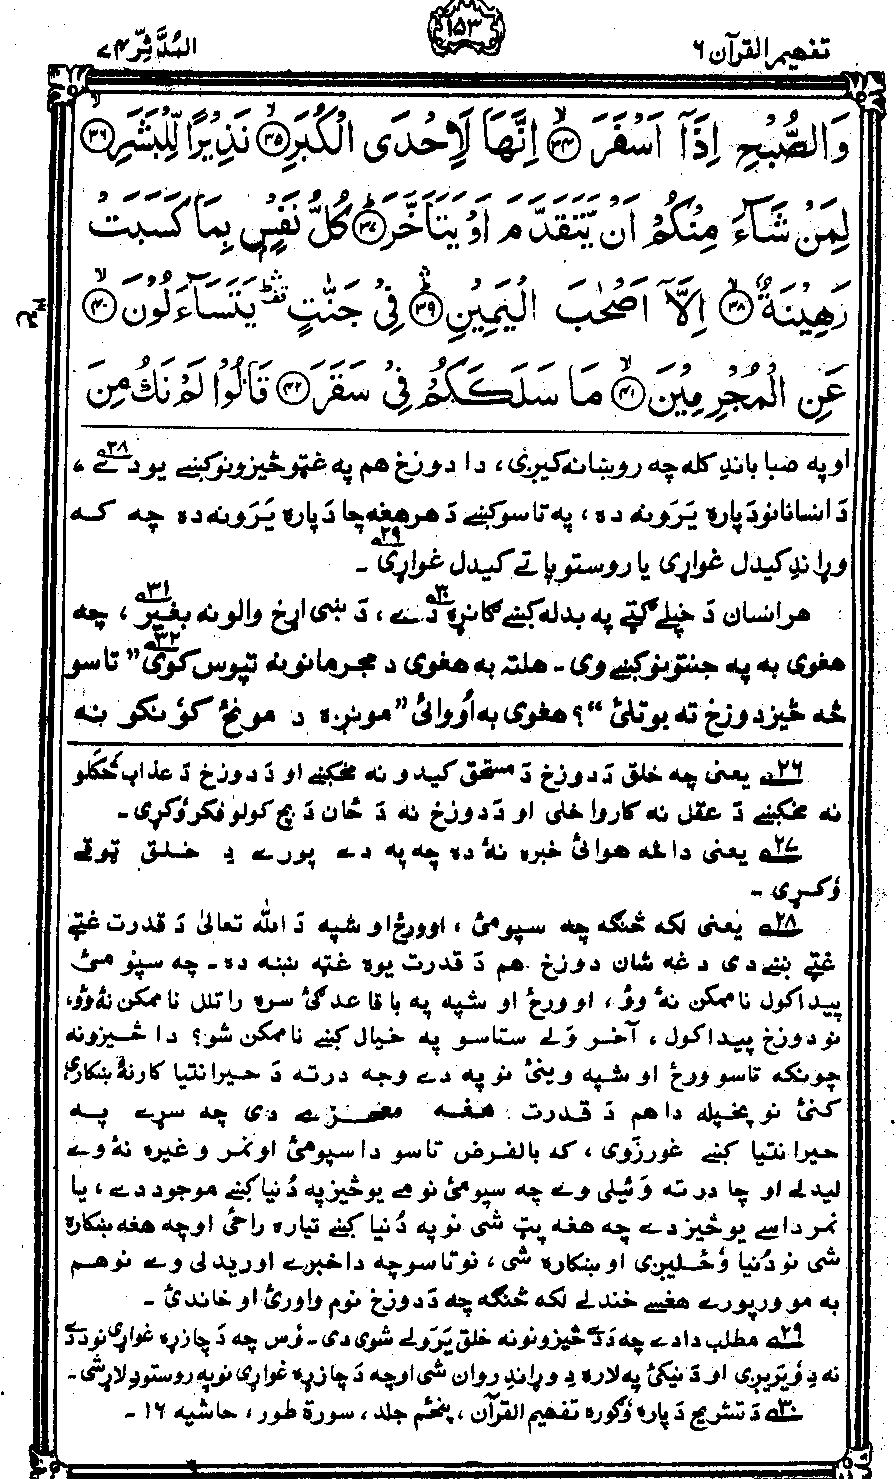 تفهيم القرآن ۶
۱۵۳
المُدَّثِّر ۷۴
وَالصُّبْحِ اِذَآ اَسْفَرَ ﴿۳۴﴾ اِنَّهَا لَاِحْدَى الْكُبَرِ ﴿۳۵﴾ نَذِيْرًا لِّلْبَشَرِ ﴿۳۶﴾
لِمَنْ شَآءَ مِنْكُمْ اَنْ يَّتَقَدَّمَ اَوْ يَتَاَخَّرَ ﴿۳۷﴾ كُلُّ نَفْسٍ بِمَا كَسَبَتْ
رَهِيْنَةٌ ﴿۳۸﴾ اِلَّآ اَصْحٰبَ الْيَمِيْنِ ﴿۳۹﴾ فِيْ جَنّٰتٍ يَتَسَآءَلُوْنَ ﴿۴۰﴾
عَنِ الْمُجْرِمِيْنَ ﴿۴۱﴾ مَا سَلَكَكُمْ فِيْ سَقَرَ ﴿۴۲﴾ قَالُوْا لَمْ نَكُ مِنَ
او په صبا باندِ كله چه روښانه كيږى، دا دوزخ هم په غټو څيزونو كښے يو دے ۲۸،
دَ انسانانو دَ پاره يَرَوونه ده، په تاسو كښے دَ هر هغه چا دَ پاره يَرَوونه ده چه كه
وړاندِ كيدل غواړى يا روستو پاتے كيدل غواړى ۲۹ ـ
هر انسان دَ خپلے گټے په بدله كښے گانړه ۳۰ دے، دَ ښى اړخ والو نه بغير ۳۱، چه
هغوى به په جنتونو كښے وى ـ هلته به هغوى د مجرمانو نه تپوس كوى ۳۲ ”تاسو
څه څيز دوزخ ته بوتلئ“؟ هغوى به اُووائى ”مونږه د مونځ كوئنكو نه
۲۶ يعنى چه خلق دَ دوزخ دَ مستحق كيدو نه مخكښے او دَ دوزخ دَ عذاب څكلو
نه مخكښے دَ عقل نه كار واخلى او دَ دوزخ نه دَ ځان دَ بچ كولو فكر وُكړى ـ
۲۷ يعنى دا څه هوائى خبره نۀ ده چه په دے پورے دِ خلق ټوقے
وُكړى ـ
۲۸ يعنى لكه څنگه چه سپومئ، او ورځ او شپه دَ الله تعالىٰ دَ قدرت غټے
غټے نښے دى دغه شان دوزخ هم دَ قدرت يوه غټه نښه ده ـ چه سپومئ
پيدا كول ناممكن نۀ وؤ، او ورځ او شپه په باقاعدگئ سره راتلل ناممكن نۀ وؤ،
نو دوزخ پيدا كول، آخر وَلے ستاسو په خيال كښے ناممكن شو؟ دا څيزونه
چونكه تاسو ورځ او شپه وينئ نو په دے وجه درته دَ حيرانتيا كار نۀ ښكارى
كنئ نو پخپله دا هم دَ قدرت هغه معجزے دى چه سړے په
حيرانتيا كښے غورزَوى، كه بالفرض تاسو دا سپومئ او نمر وغيره نۀ وے
ليدلے او چا درته وَئيلى وے چه سپومئ نومے يو څيز په دُنيا كښے موجود دے، يا
نمر داسے يو څيز دے چه هغه پټ شى نو په دُنيا كښے تياره راځى او چه هغه ښكاره
شى نو دُنيا وُځلېږى او ښكاره شى، نو تاسو چه دا خبرے اوريدلى وے نو هم
به مو ورپورے هغسے خندلے لكه څنگه چه دَ دوزخ نوم واورئ او خاندئ ـ
۲۹ مطلب دا دے چه دَ دے څيزونو نه خلق يَرَولے شوى دى ـ اوس چه دَ چا زړه غواړى نو دَ دے
نه دِ وُيرېږى او دَ نيكئ په لاره دِ وړاندِ روان شى او چه دَ چا زړه غواړى نو په روستو دِ لاړ شى ـ
۳۰ دَ تشريح دَ پاره وُگوره تفهيم القرآن، پنځم جلد، سورة طور، حاشيه ۱۶ ـ